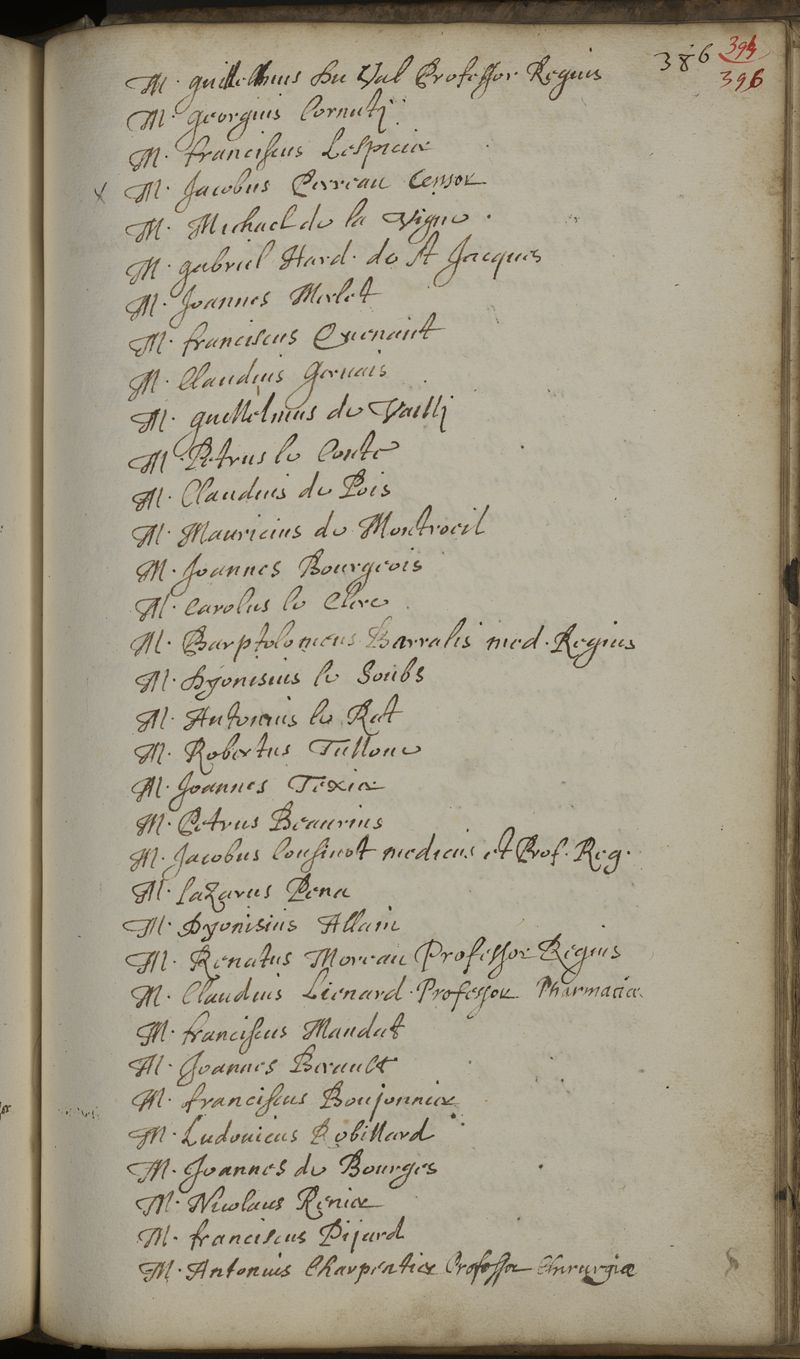 386 394
396
M. guillelmus du Val Professor Regius
M. georgius Cornuti
M. franciscus Lespicier
M. Jacobus Perreau Censor
M. Michael de la Vigne
M. gabriel Hard. de St Jacques
M. Joannes Merlet
M. franciscus Quenault
M. Claudius Geruais
M. guillelmus de Vailli
M. Petrus le Conte
M. Claudius du Pois
M. Mauricius de Montroeil
M. Joannes Bourgeois
M. Carolus le Clerc
M. Barptolomeus Barralis med. Regius
M. Dyonisius le Soubs
M. Antonius le Rat
M. Robertus Tullone
M. Joannes Texier
M. Petrus Beaurins
M. Jacobus Cousinot medicus et Prof. Reg.
M. Lazarus Pena
M. Dyonisius Allain
M. Renatus Moreau Professor Regius
M. Claudius Lienard Professor Pharmaciæ
M. franciscus Mandat
M. Joannes Berault
M. franciscus Boujonnier
M. Ludouicus Robillard
M. Joannes de Bourges
M. Nicolaus Renier
M. franciscus Pijard
M. Antonius Charpentier Professor Chirurgiæ